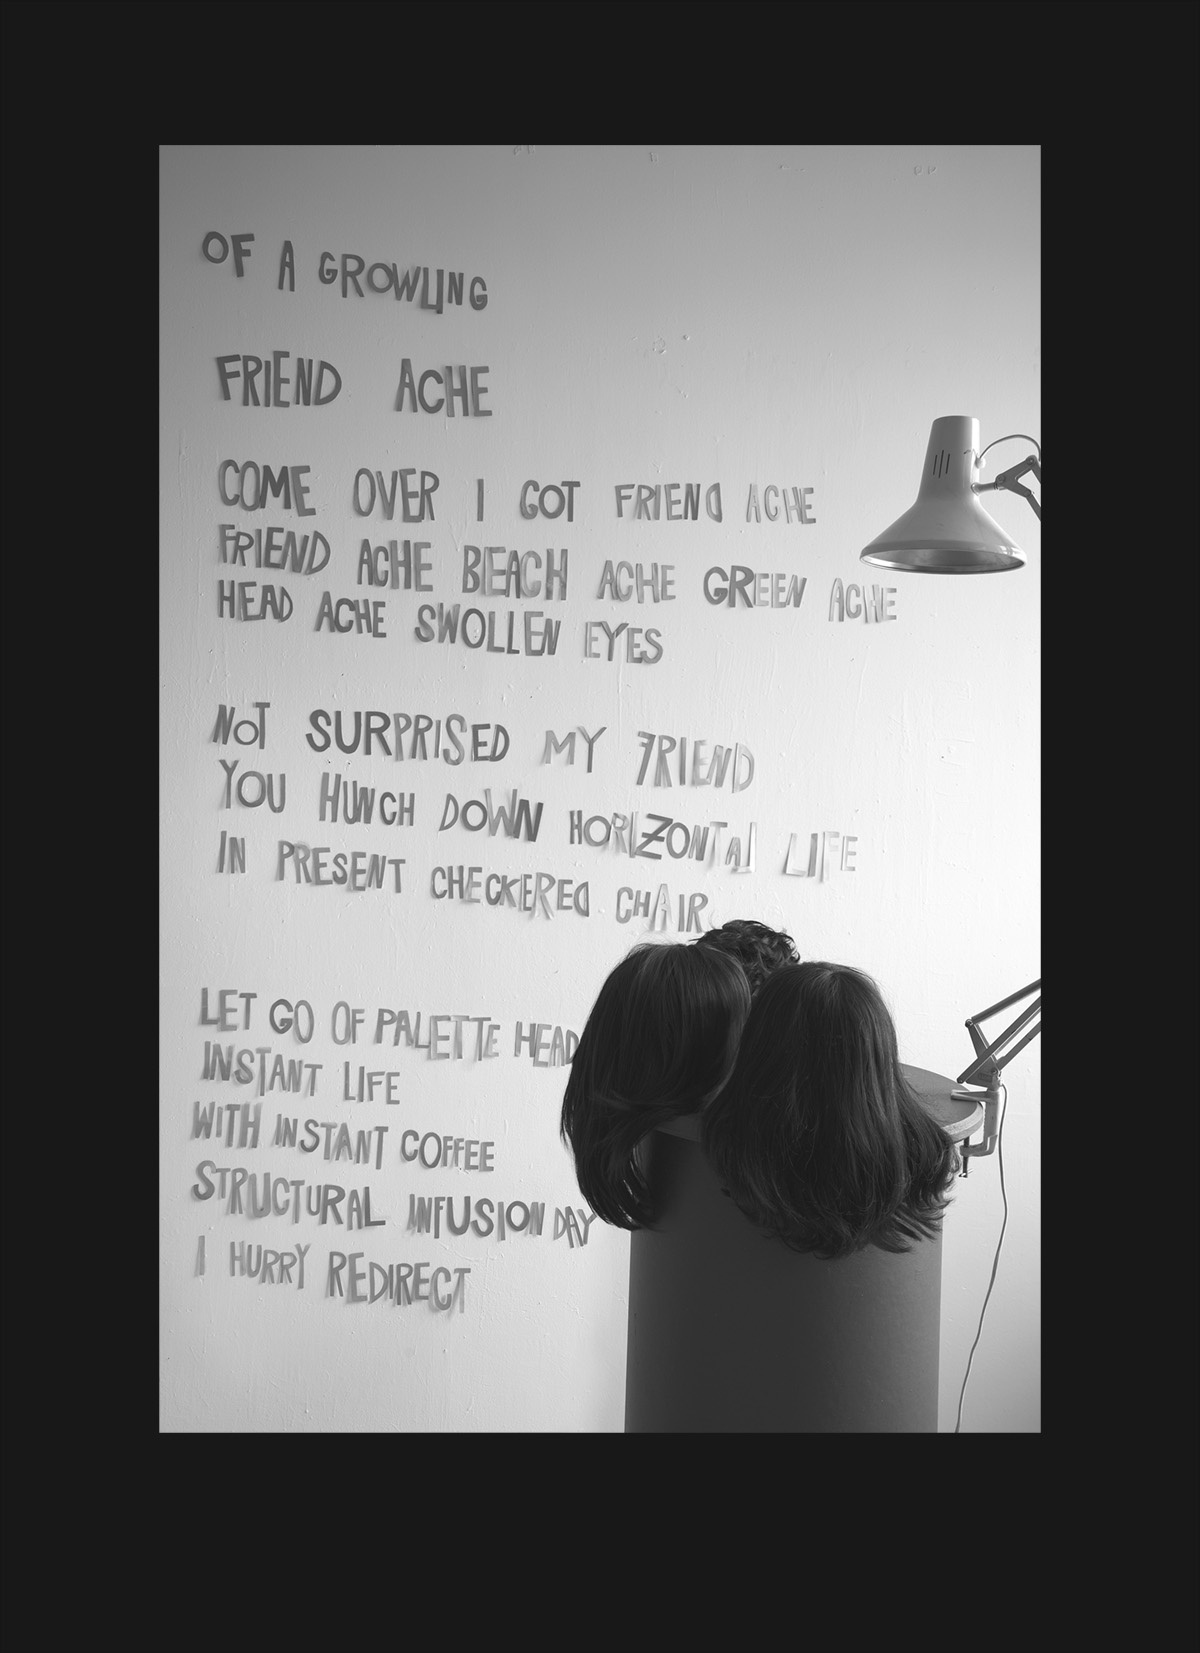 OF A GROWLING
FRIEND ACHE
COME OVER I GOT FRIEND ACHE
FRIEND ACHE BEACH ACHE GREEN ACHE
HEAD ACHE SWOLLEN EYES
NOT SURPRISED MY FRIEND
YOU HUNCH DOWN HORIZONTAL LIFE
IN PRESENT CHECKERED CHAIR
LET GO OF PALETTE HEAD
INSTANT LIFE
WITH INSTANT COFFEE
STRUCTURAL INFUSION DAY
I HURRY REDIRECT